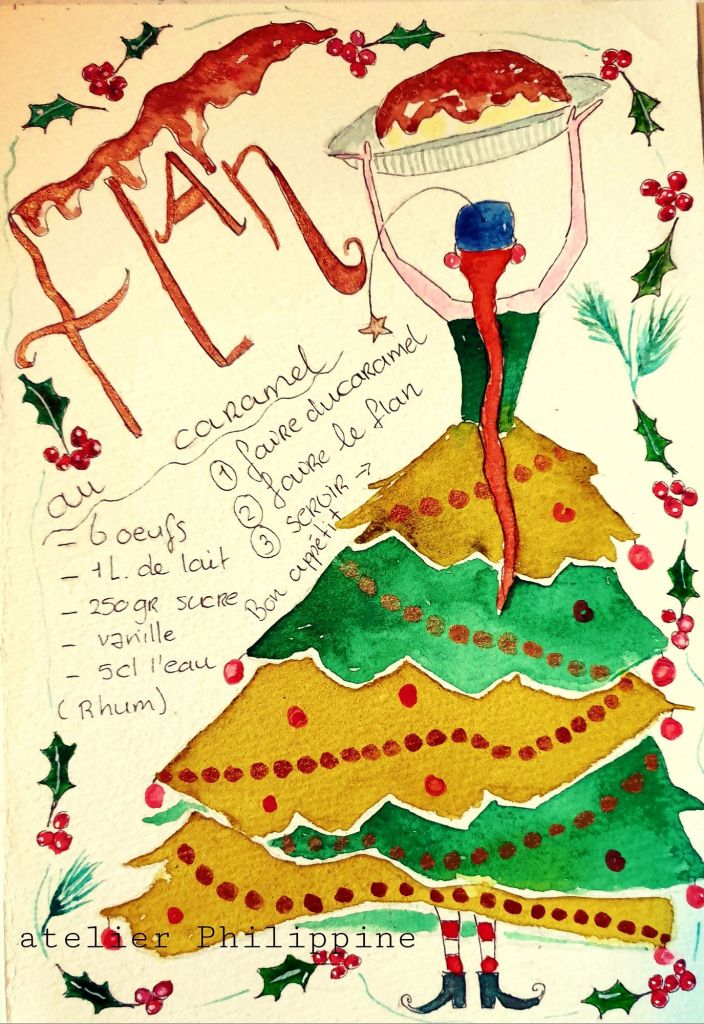 FLAN
au caramel
- 6 oeufs
- 1L. de lait
- 250gr sucre
- vanille
- 5cl l'eau
(Rhum)
① faire du caramel
② faire le flan
③ servir →
Bon appétit
atelier Philippine